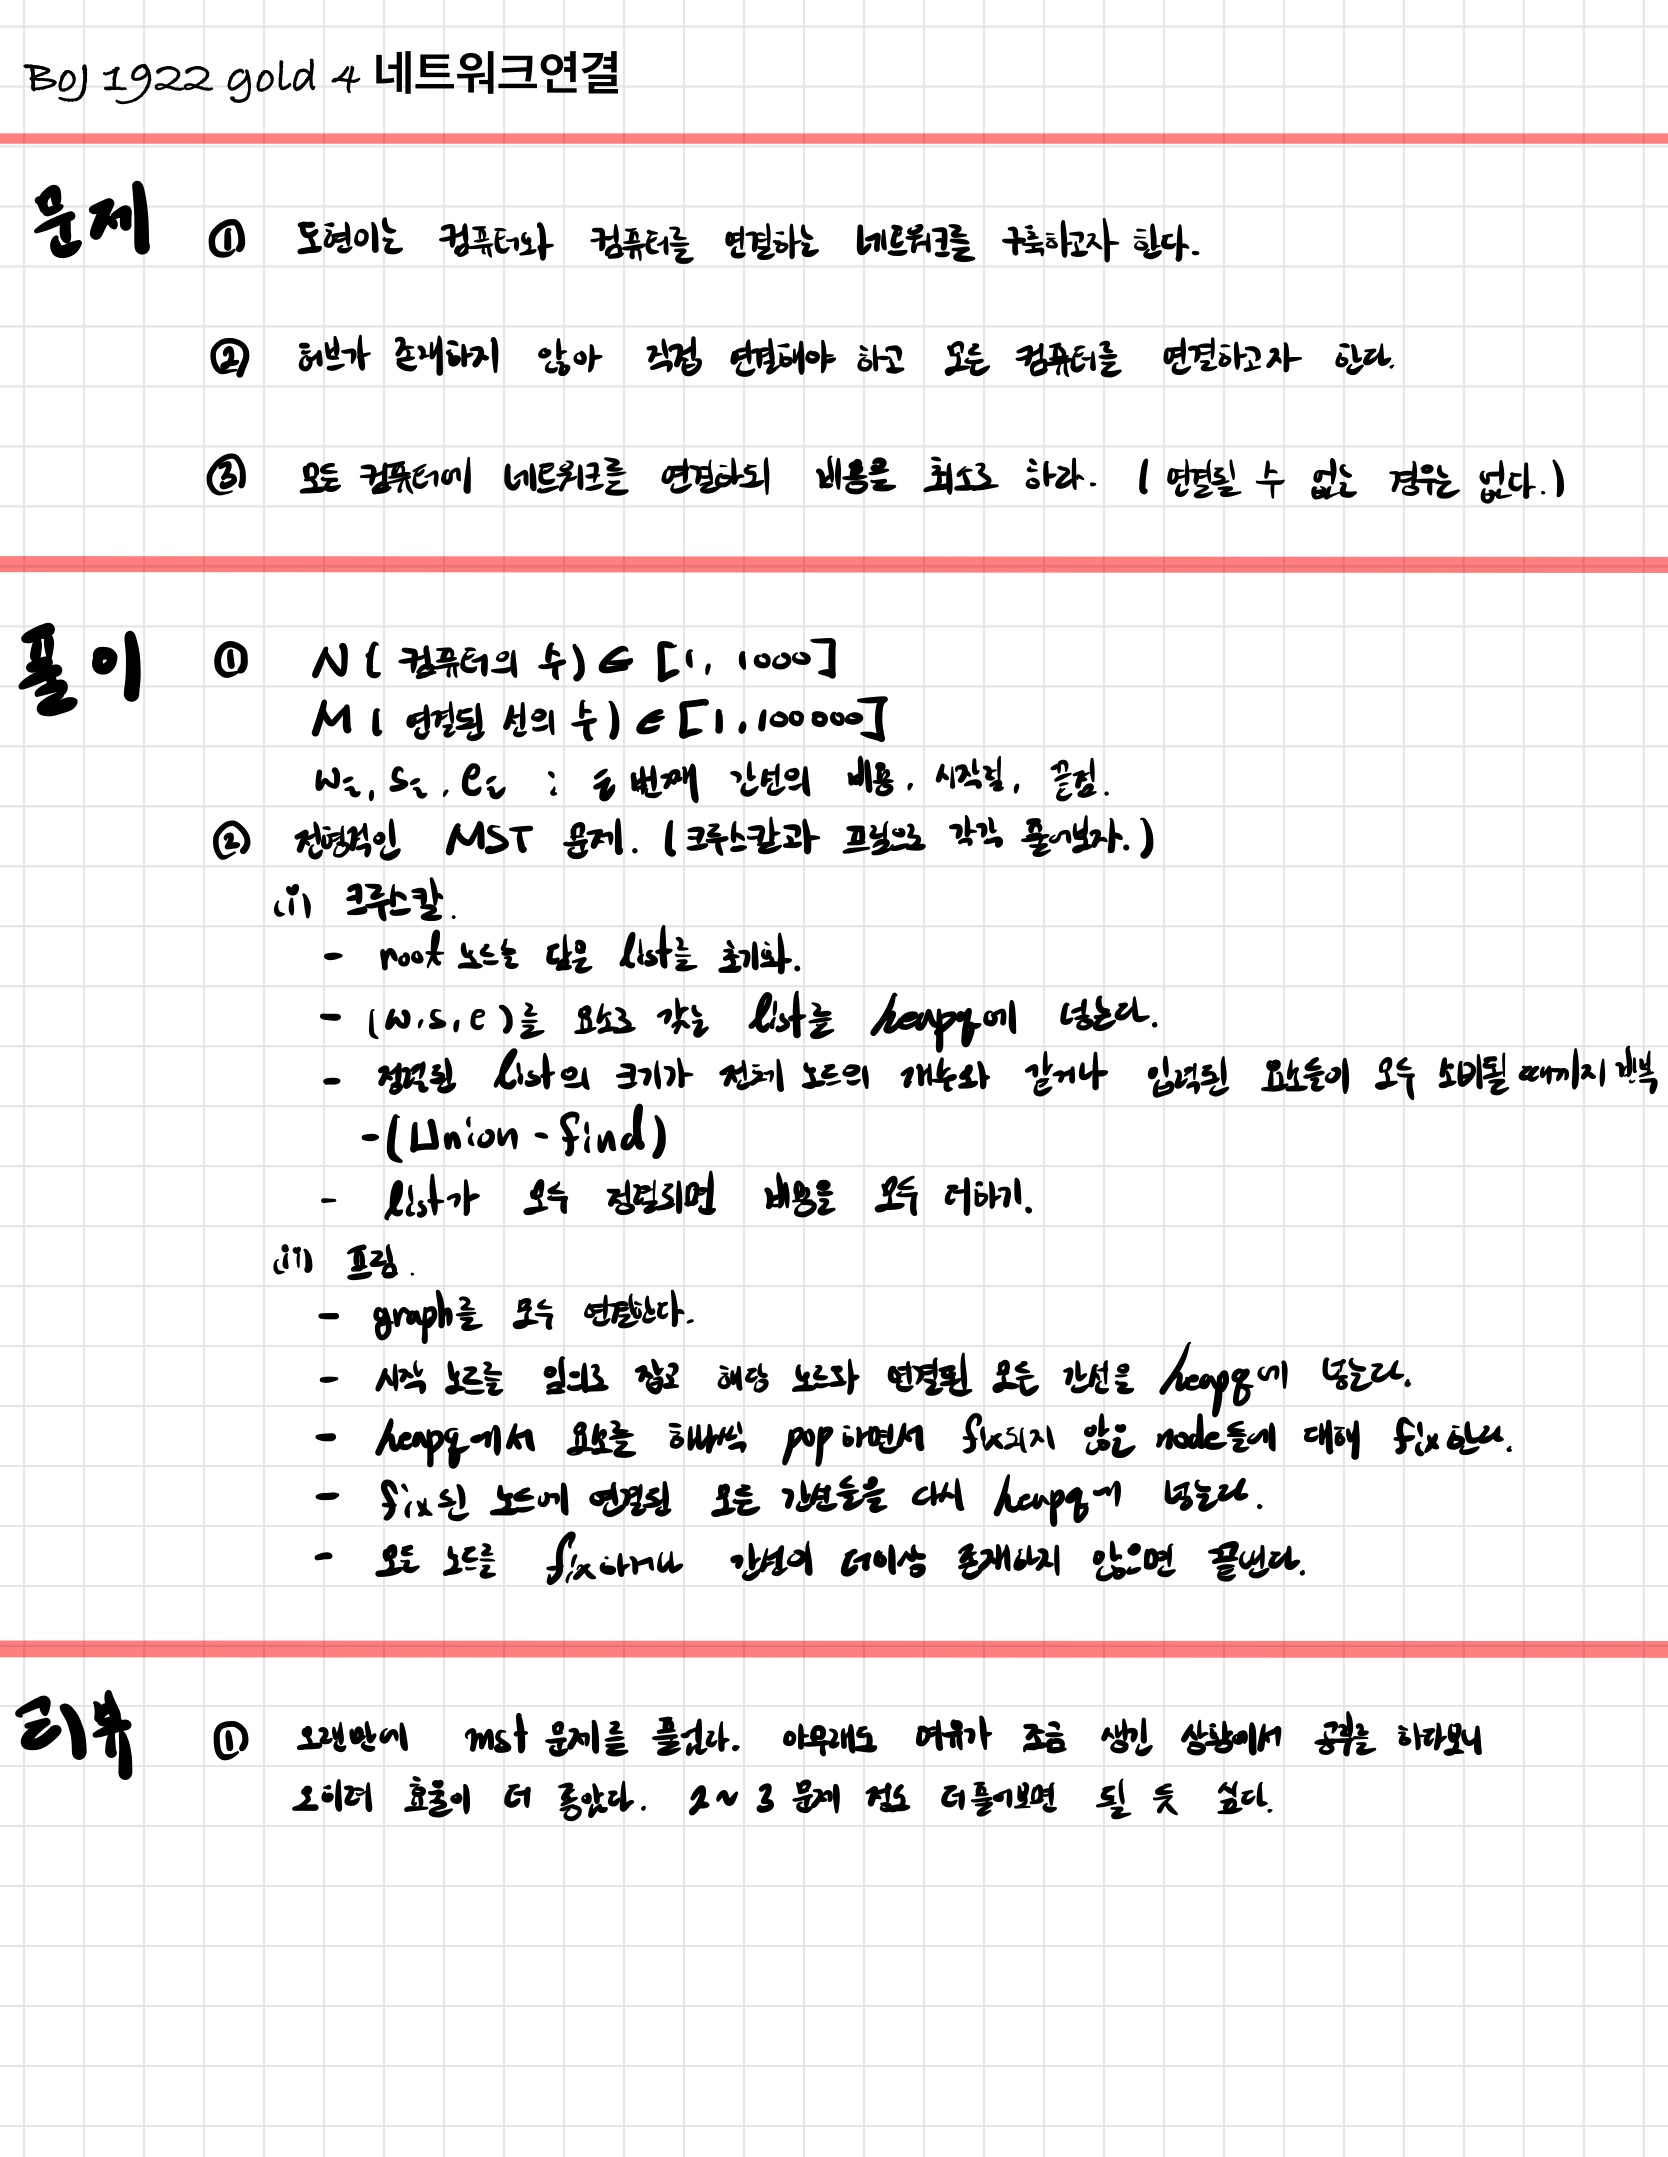 BOJ 1922 gold 4 네트워크연결
문제
① 도현이는 컴퓨터와 컴퓨터를 연결하는 네트워크를 구축하고자 한다.
② 허브가 존재하지 않아 직접 연결해야 하고 모든 컴퓨터를 연결하고자 한다.
③ 모든 컴퓨터에 네트워크를 연결하되 비용을 최소로 하라. (연결될 수 없는 경우는 없다.)
풀이
① N(컴퓨터의 수) ∈ [1, 1000]
M(연결된 선의 수) ∈ [1, 100000]
wᵢ, sᵢ, eᵢ : i 번째 간선의 비용, 시작점, 끝점.
② 전형적인 MST 문제. (크루스칼과 프림으로 각각 풀어보자.)
(i) 크루스칼.
- root 노드를 담은 list를 초기화.
- (w,s,e)를 요소로 갖는 list를 heapq에 넣는다.
- 정렬된 list의 크기가 전체 노드의 개수와 같거나 입력된 요소들이 모두 소비될 때까지 반복
-(Union-find)
- list가 모두 정렬되면 비용을 모두 더하기.
(ii) 프림.
- graph를 모두 연결한다.
- 시작 노드를 임의로 잡고 해당 노드와 연결된 모든 간선을 heapq에 넣는다.
- heapq에서 요소를 하나씩 pop하면서 fix되지 않은 node들에 대해 fix한다.
- fix된 노드에 연결된 모든 간선들을 다시 heapq에 넣는다.
- 모든 노드를 fix하거나 간선이 더이상 존재하지 않으면 끝낸다.
리뷰
① 오랜만에 mst 문제를 풀었다. 아무래도 여유가 조금 생긴 상황에서 공부를 하다보니
오히려 효율이 더 좋았다. 2~3 문제 정도 더 풀어보면 될 듯 싶다.